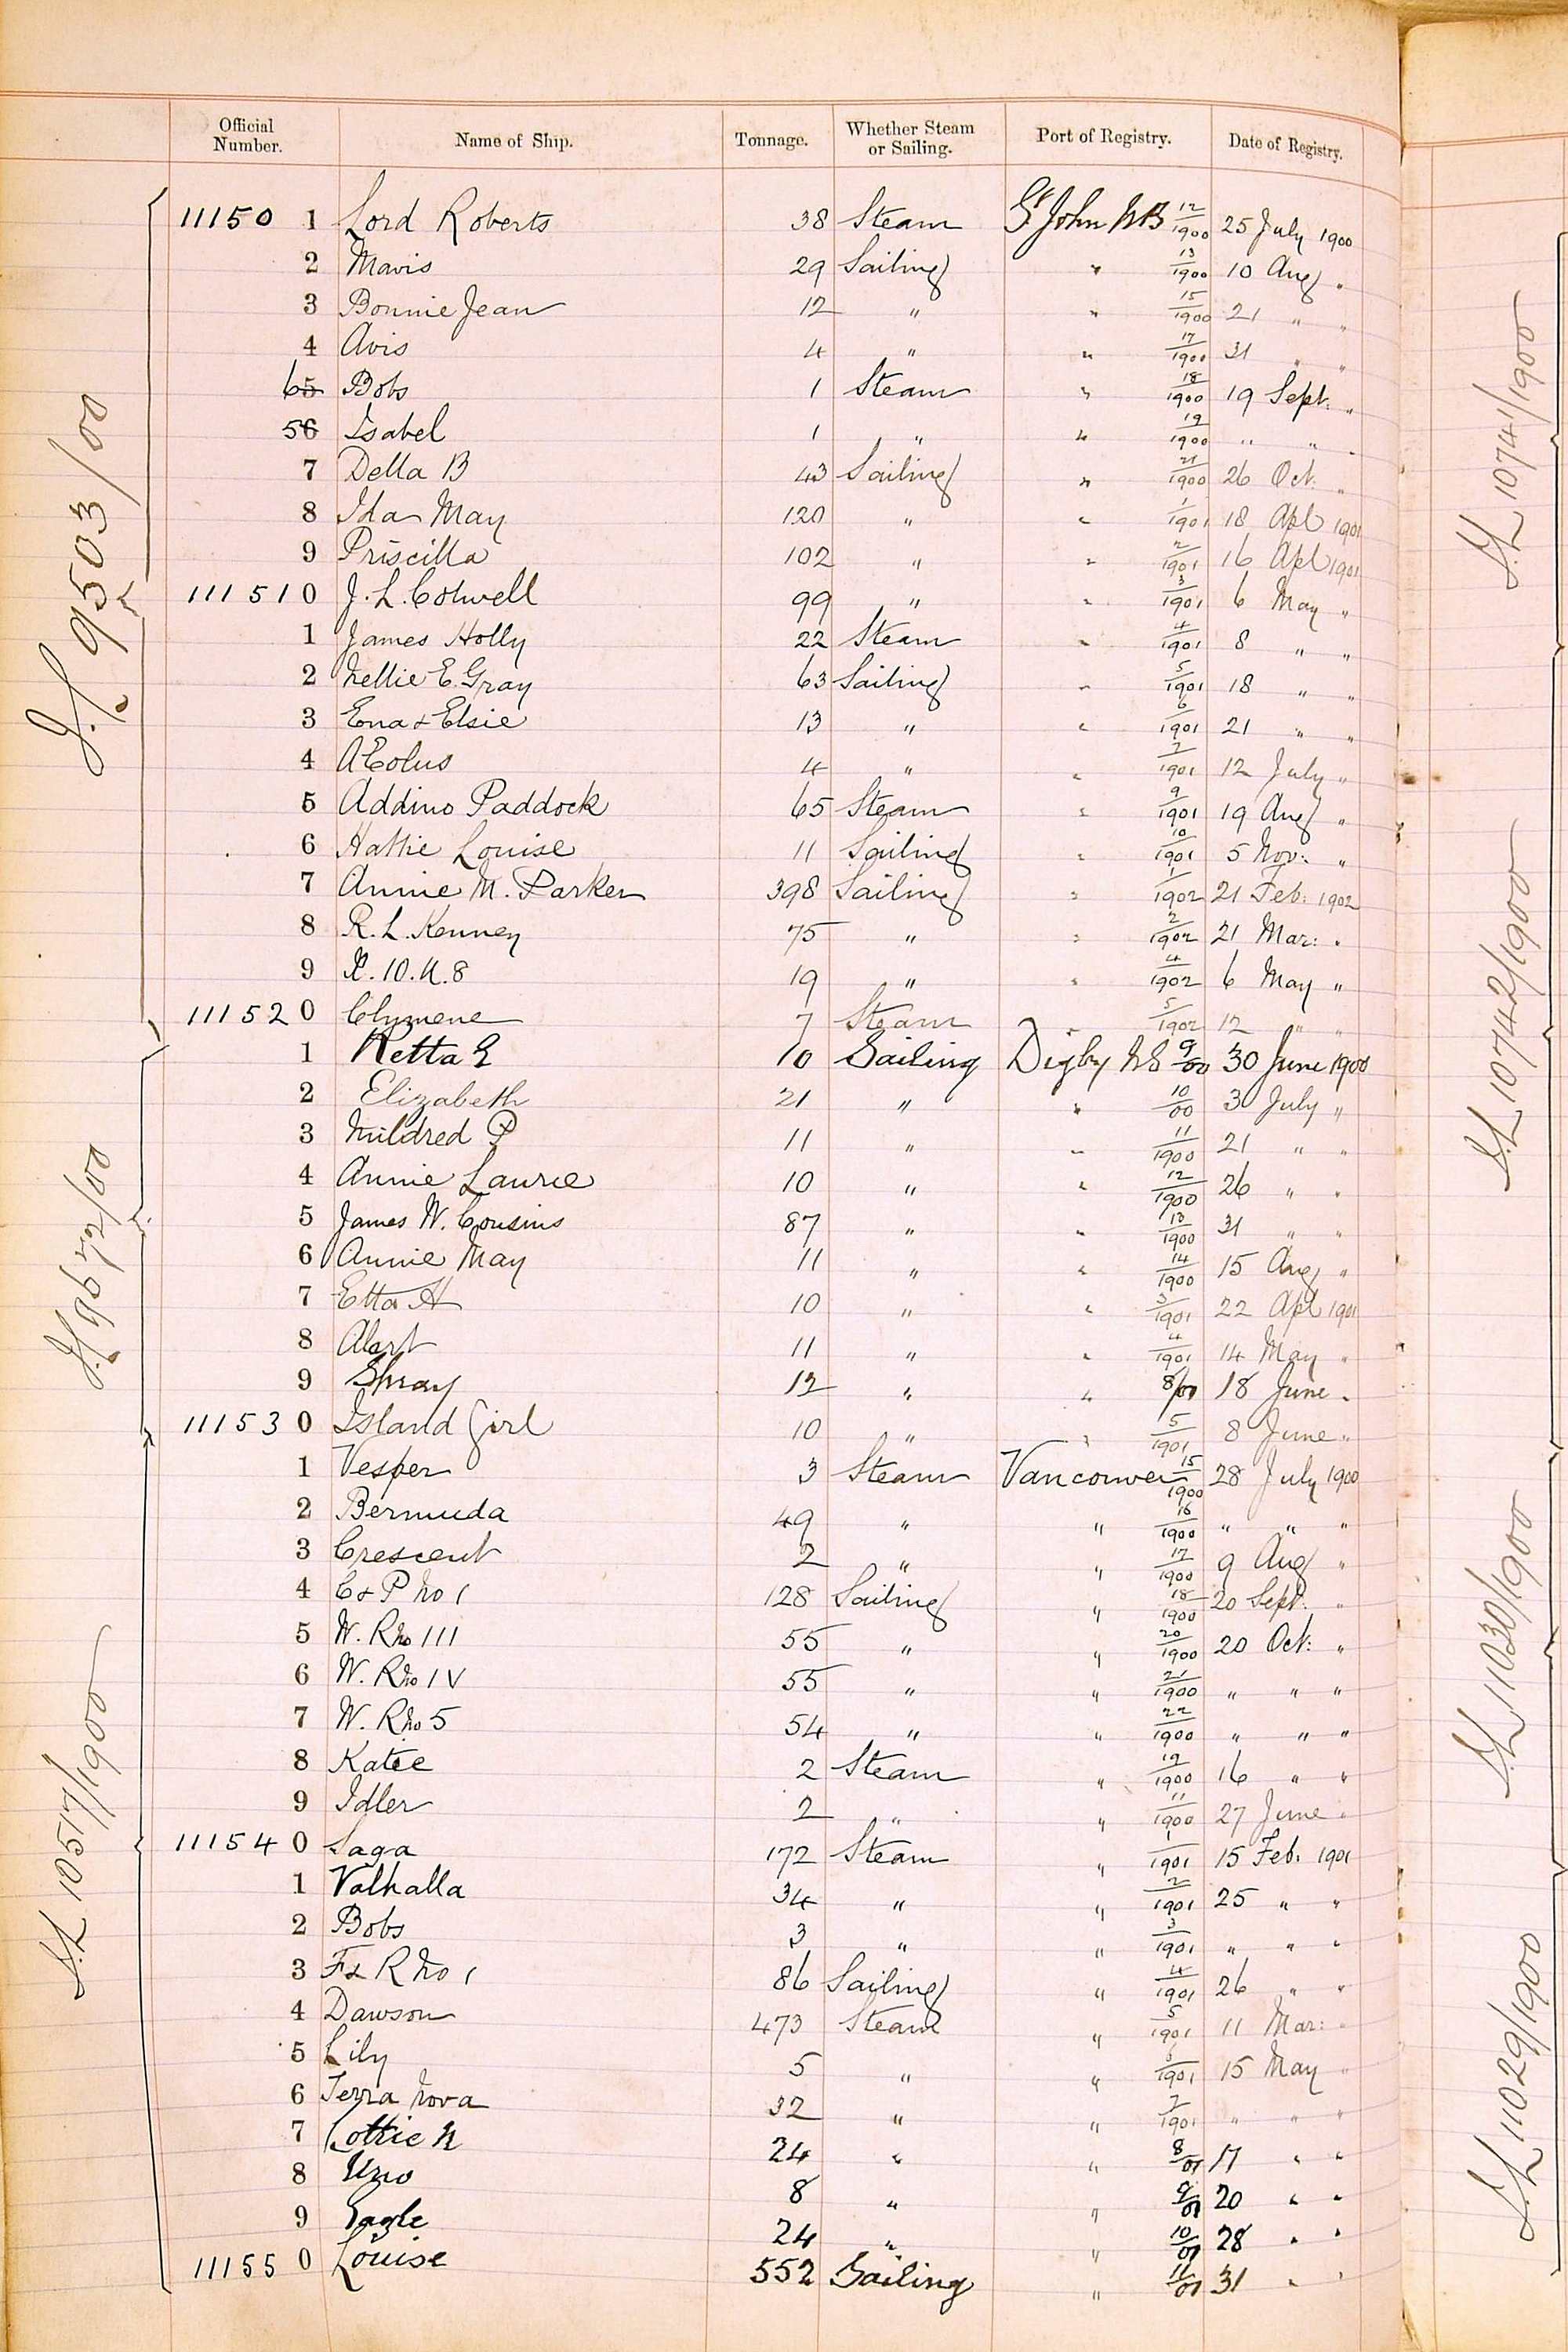 Official Number. Name of Ship. Tonnage. Whether Steam or Sailing. Port of Registry. Date of Registry.
11150 1 Lord Roberts 38 Steam St John NB 12/1900 25 July 1900
2 Mavis 29 Sailing " 13/1900 10 Aug "
3 Bonnie Jean 12 " " 15/1900 21 " "
4 Avis 4 " " 17/1900 31 " "
65 Bobs 1 Steam " 18/1900 19 Sept. "
56 Isabel 1 " " 19/1900 " "
7 Della B 43 Sailing " 21/1900 26 Oct: "
8 Ida May 120 " " 1/1901 18 Apl 1901
9 Priscilla 102 " " 2/1901 16 Apl 1901
11151 0 J. L. Colwell 99 " " 3/1901 6 May "
1 James Holly 22 Steam " 4/1901 8 " "
2 Nellie E. Gray 63 Sailing " 5/1901 18 " "
3 Ena & Elsie 13 " " 6/1901 21 " "
4 AEolus 4 " " 7/1901 12 July "
5 Addino Paddock 65 Steam " 9/1901 19 Aug "
6 Hattie Louise 11 Sailing " 10/1901 5 Nov: "
7 Annie M. Parker 398 Sailing " 1/1902 21 Feb: 1902
8 R. L. Kenney 75 " " 2/1902 21 Mar: "
9 X. 10. U. 8 19 " " 4/1902 6 May "
11152 0 Clymene 7 Steam " 5/1902 12 " "
1 Retta E 10 Sailing Digby NS 9/00 30 June 1900
2 Elizabeth 21 " " 10/00 3 July "
3 Mildred P 11 " " 11/1900 21 " "
4 Annie Laurie 10 " " 12/1900 26 " "
5 James W. Cousins 87 " " 13/1900 31 " "
6 Annie May 11 " " 14/1900 15 Aug "
7 Etta H 10 " " 3/1901 22 Apl 1901
8 Alert 11 " " 4/1901 14 May "
9 Spray 12 " " 8/01 18 June "
11153 0 Island Girl 10 " " 5/1901 8 June "
1 Vesper 3 Steam Vancouver 15/1900 28 July 1900
2 Bermuda 49 " " 16/1900 " " "
3 Crescent 2 " " 17/1900 9 Aug "
4 C & P No 1 128 Sailing " 18/1900 20 Sept: "
5 W. R No III 55 " " 20/1900 20 Oct: "
6 W. R No IV 55 " " 21/1900 " " "
7 W. R No 5 54 " " 22/1900 " " "
8 Katie 2 Steam " 19/1900 16 " "
9 Idler 2 " " 11/1900 27 June "
11154 0 Saga 172 Steam " 1/1901 15 Feb: 1901
1 Valhalla 34 " " 2/1901 25 " "
2 Bobs 3 " " 3/1901 " " "
3 F & R No 1 86 Sailing " 4/1901 26 " "
4 Dawson 473 Steam " 5/1901 11 Mar: "
5 Lily 5 " " /1901 15 May "
6 Terra Nova 32 " " 7/1901 " " "
7 Lottie N 24 " " 8/01 17 " "
8 Uno 8 " " 9/01 20 " "
9 Eagle 24 " " 10/01 28 " "
11155 0 Louise 552 Sailing " 11/01 31 " "
9503/00
9672/00
10517/1900
10741/1900
10742/1900
11030/1900
11029/1900